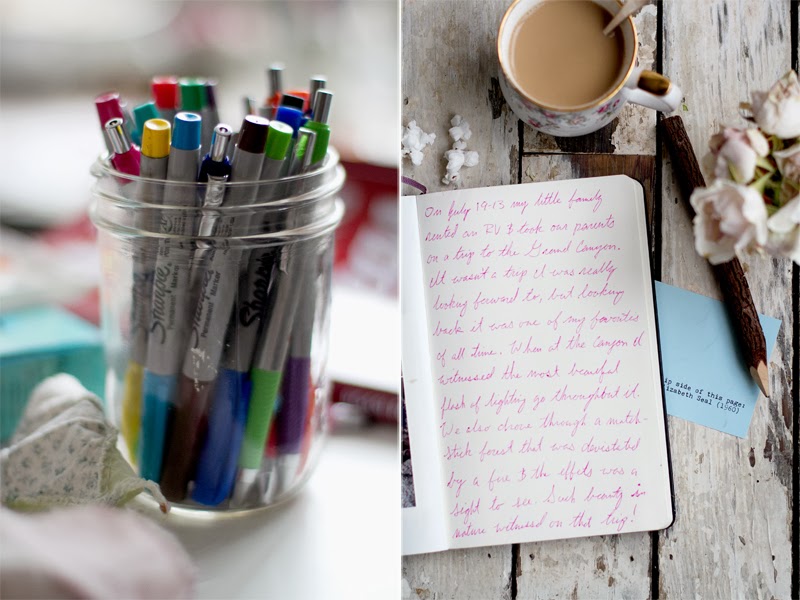 Sharpie
Permanent Marker
Sharpie
Permanent Marker
Sharpie
On July 19-13 my little family
rented an RV & took our parents
on a trip to the Grand Canyon.
It wasn't a trip I was really
looking forward to, but looking
back it was one of my favorites
of all time. When at the Canyon I
witnessed the most beautiful
flash of lighting go throughout it.
We also drove through a match-
stick forest that was devistated
by a fire & the effects was a
sight to see. Such beauty in
nature witnessed on that trip!
ip side of this page:
lizabeth Seal (1960)